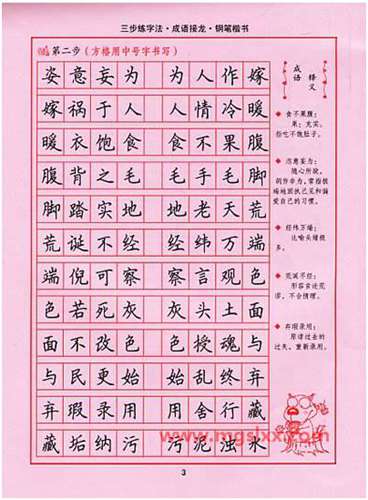 三步练字法·成语接龙·钢笔楷书
第二步（方格用中号字书写）
姿意妄为 为人作嫁
嫁祸于人 人情冷暖
暖衣饱食 食不果腹
腹背之毛 毛手毛脚
脚踏实地 地老天荒
荒诞不经 经纬万端
端倪可察 察言观色
色若死灰 灰头土面
面不改色 色授魂与
与民更始 始乱终弃
弃瑕录用 用舍行藏
藏垢纳污 污泥浊水
成语释义
◆食不果腹：
果：充实。
指吃不饱肚子。
◆恣意妄为：
随心所欲，
◆经纬万端：
比喻头绪很
多。
◆荒诞不经：
形容言论荒
谬，不合情理。
◆弃瑕录用：
原谅过去的
过失，重新录用。
www.mgslxx.com
3